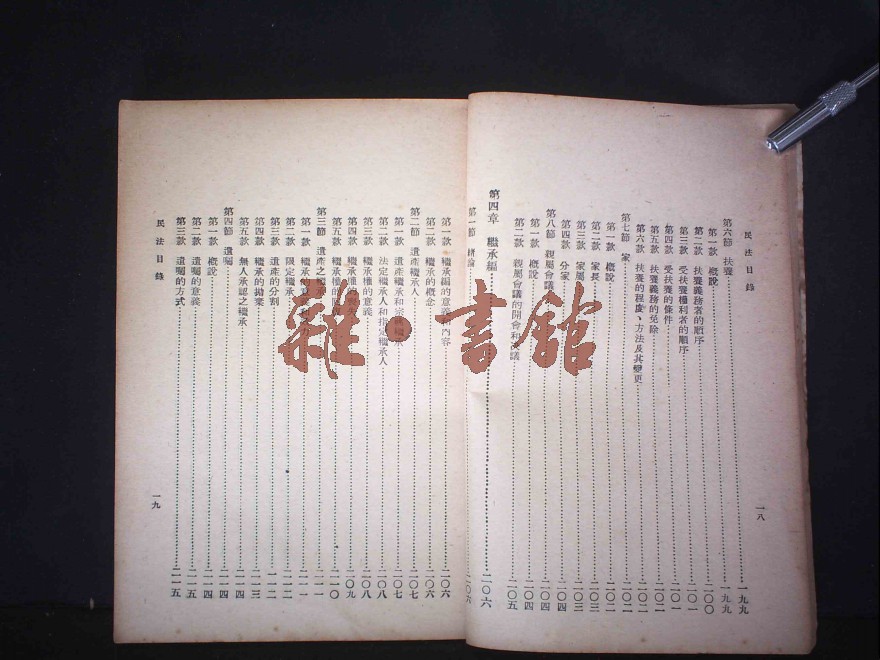 民法目錄 一八
第六節 扶養……一九九
第一款 概說……一九九
第二款 扶養義務者的順序……二〇〇
第三款 受扶養權利者的順序……二〇一
第四款 受扶養的條件……二〇一
第五款 扶養義務的免除……二〇二
第六款 扶養的程度、方法及其變更……二〇二
第七節 家……二〇二
第一款 概說……二〇二
第二款 家長……二〇三
第三款 家屬……二〇三
第四款 分家……二〇四
第八節 親屬會議……二〇四
第一款 概說……二〇四
第二款 親屬會議的開會和決議……二〇五
第四章 繼承編……二〇六
第一節 總論……二〇六
第一款 繼承編的意義和內容……二〇六
第二款 繼承的概念……二〇六
第二節 遺產繼承人……二〇七
第一款 遺產繼承和宗祧繼承……二〇七
第二款 法定繼承人和指定繼承人……二〇八
第三款 繼承權的意義……二〇八
第四款 繼承權的……二〇九
第五款 繼承權的……二一〇
第三節 遺產之繼承……二一一
第一款 繼承的意義和……二一一
第二款 限定繼承……二一二
第三款 遺產的分割……二一二
第四款 繼承的拋棄……二一三
第五款 無人承認之繼承……二一四
第四節 遺囑……二一四
第一款 概說……二一四
第二款 遺囑的意義……二一四
第三款 遺囑的方式……二一五
民法目錄 一九
雜·書館